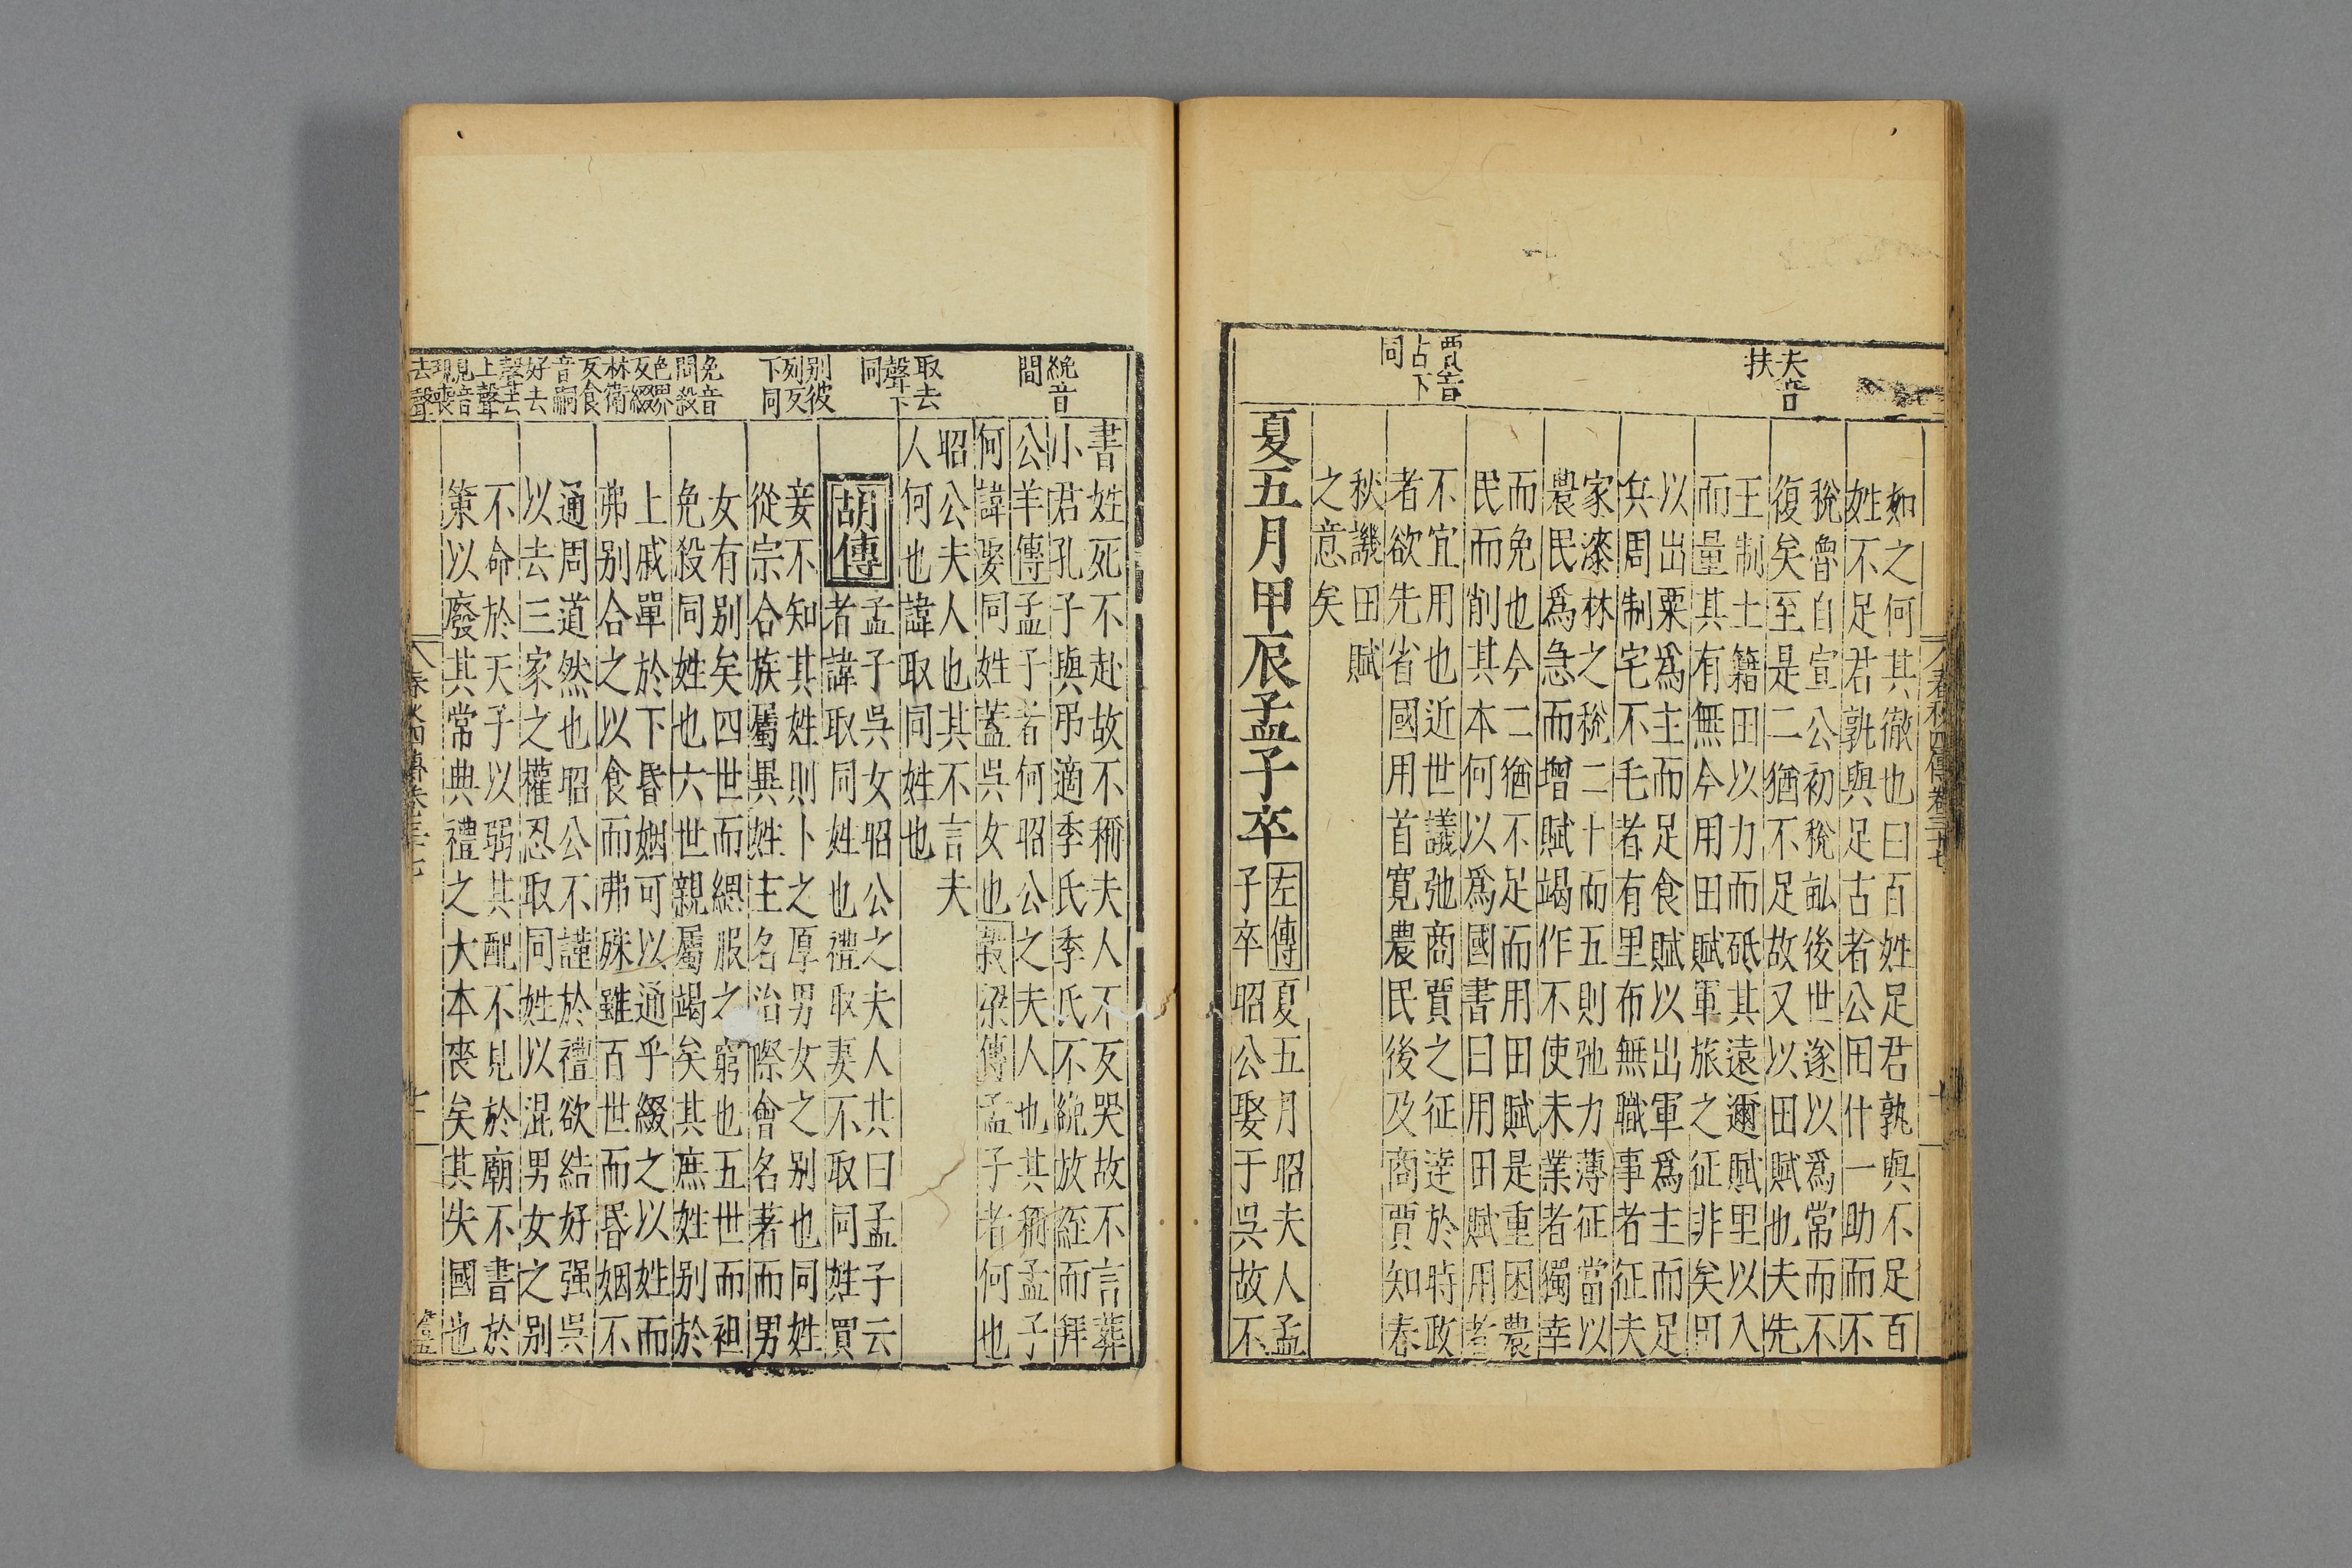 夫音
扶
賈音
占下
同
如之何其徹也曰百姓足君孰與不足百
姓不足君孰與足古者公田什一助而不
稅魯自宣公初稅畝後世遂以爲常而不
復矣至是二猶不足故又以田賦也夫先
王制土籍田以力而砥其遠邇賦里以入
而量其有無今用田賦軍旅之征非矣田
以出粟爲主而足食賦以出軍爲主而足
兵周制宅不毛者有里布無職事者征夫
家漆林之稅二十而五則弛力薄征當以
農民爲急而增賦竭作不使末業者獨幸
而免也今二猶不足而用田賦是重困農
民而削其本何以爲國書曰用田賦用者
不宜用也近世議弛商賈之征達於時政
者欲先省國用首寬農民後及商賈知春
秋譏田賦
之意矣
夏五月甲辰孟子卒
左傳夏五月昭夫人孟
子卒昭公娶于吳故不
春秋四傳卷三十七
絻音
間
取去
聲下
同
別彼
列反
下同
免音
問殺
色界
反綴
林衛
反食
音嗣
好去
聲去
上聲
見音
現喪
去聲
書姓死不赴故不稱夫人不反哭故不言葬
小君孔子與弔適季氏季氏不絻放絰而拜
公羊傳孟子者何昭公之夫人也其稱孟子
何諱娶同姓蓋吳女也穀梁傳孟子者何也
昭公夫人也其不言夫
人何也諱取同姓也
胡傳
孟子吳女昭公之夫人其曰孟子云
者諱取同姓也禮取妻不取同姓買
妾不知其姓則卜之厚男女之别也同姓
從宗合族屬異姓主名治際會名著而男
女有别矣四世而緦服之窮也五世而袒
免殺同姓也六世親屬竭矣其庶姓别於
上戚單於下昏姻可以通乎綴之以姓而
弗别合之以食而弗殊雖百世而昏姻不
通周道然也昭公不謹於禮欲結好强吳
以去三家之權忍取同姓以混男女之别
不命於天子以弱其配不見於廟不書於
策以廢其常典禮之大本喪矣其失國也